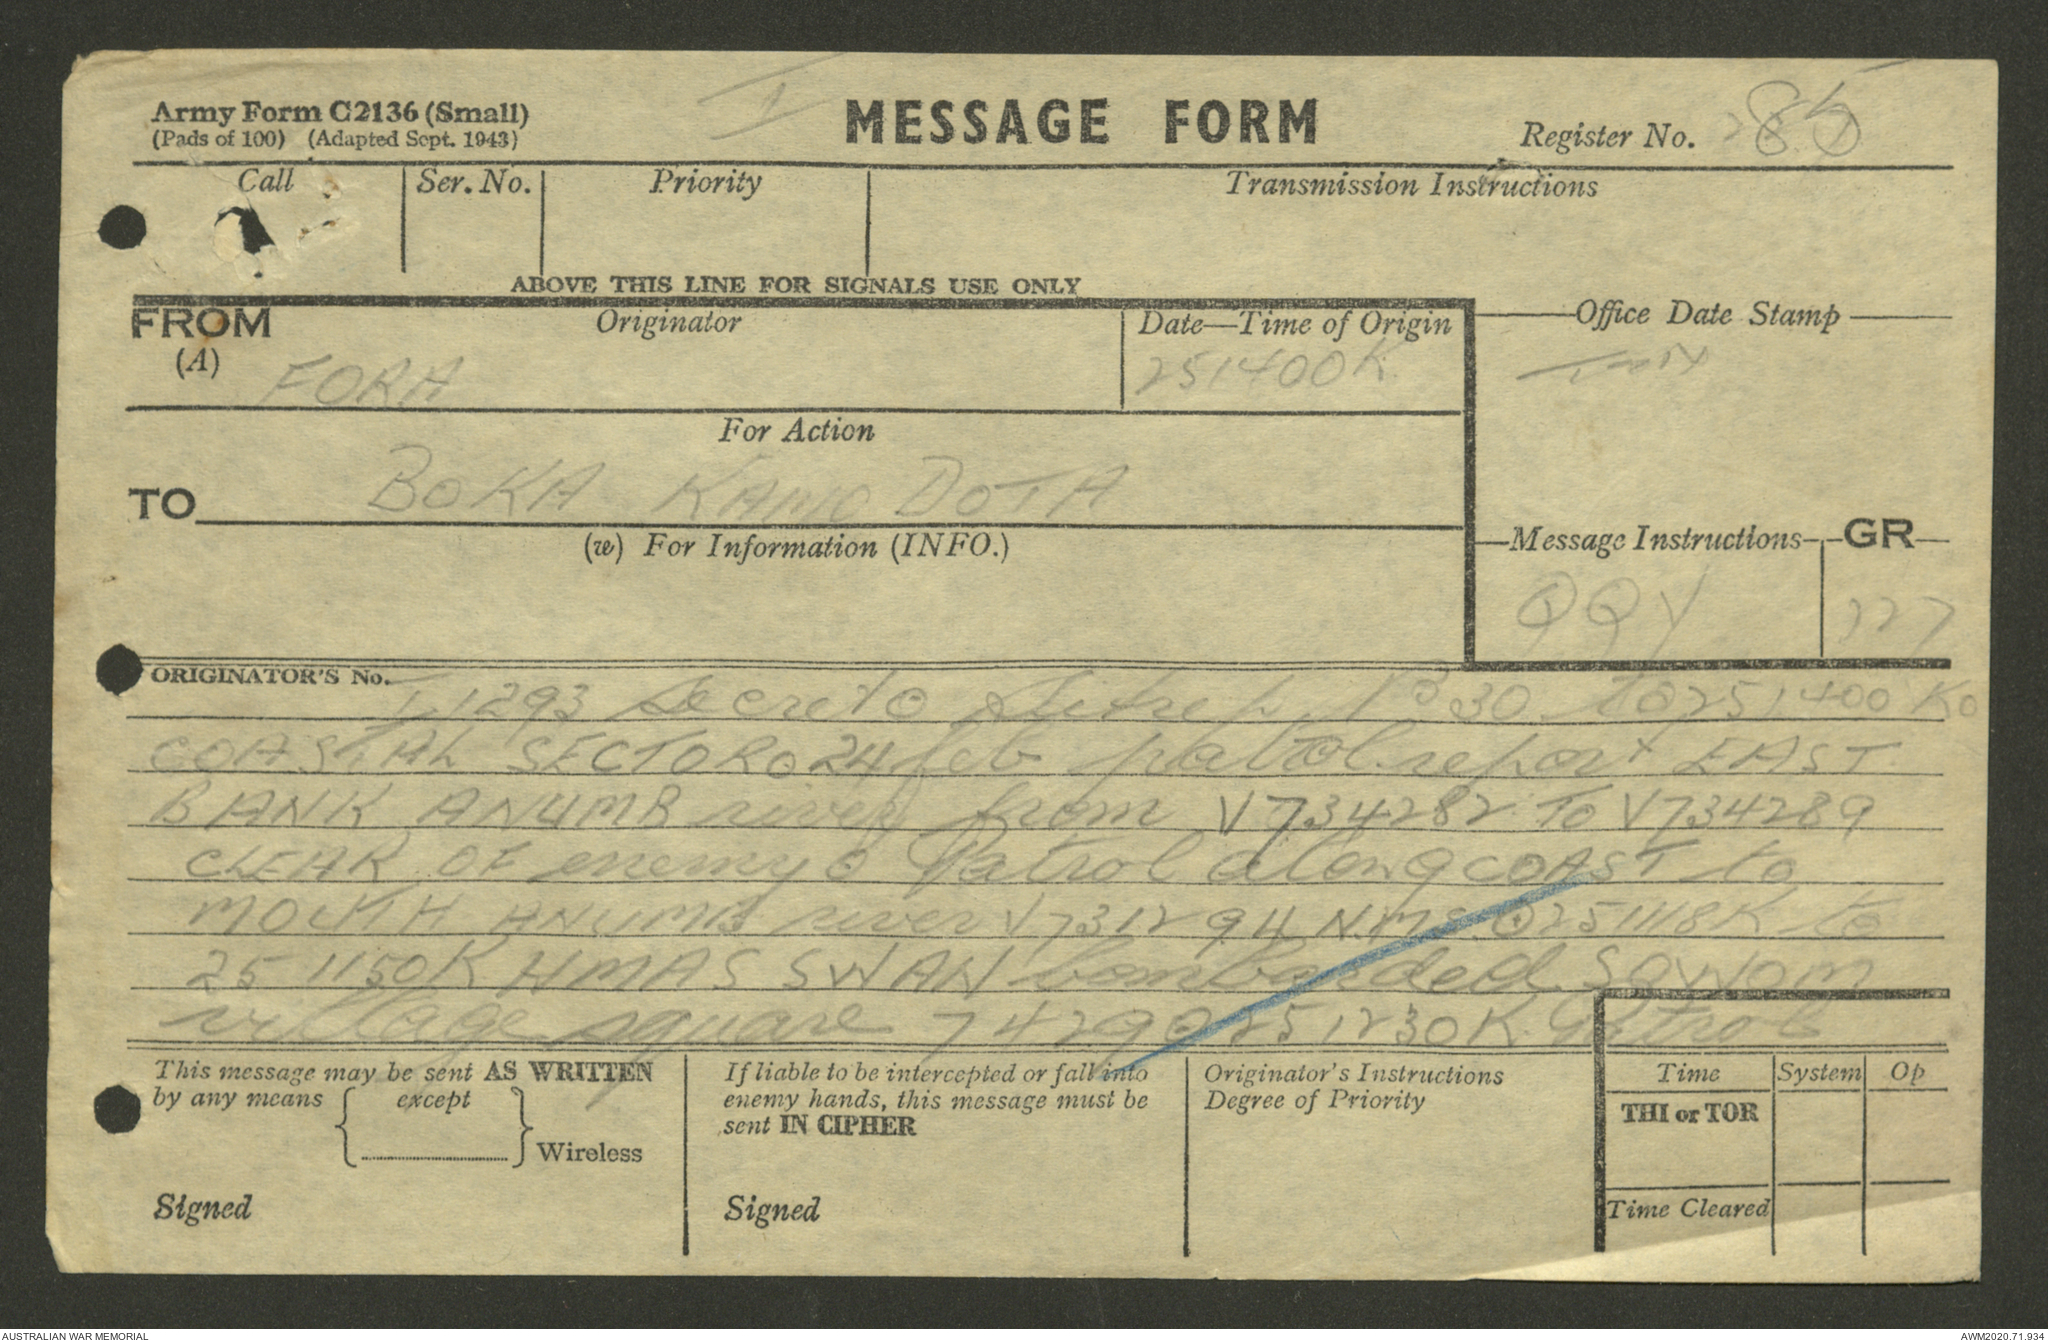 Army Form C2136 (Small)
(Pads of 100) (Adapted Sept. 1943)
I
MESSAGE FORM
Register No. 285
Call Ser. No. Priority Transmission Instructions
ABOVE THIS LINE FOR SIGNALS USE ONLY
FROM
(A)
Originator
FORA
Date—Time of Origin
251400K
Office Date Stamp
For Action
TO BOKA KAMO DOTA
(w) For Information (INFO.)
Message Instructions GR
QQY 127
ORIGINATOR'S No.
I 1293 Secret o Sitrep 30 to 251400 Ko
COASTAL SECTOR o 24 feb patrol report EAST
BANK ANUMB river from V734282 TO V734289
CLEAR OF enemy o Patrol along COAST to
MOUTH ANUMB river V731294 N.M.S. o 251118K to
251150K HMAS SWAN bombarded SOWOM
village square 7429 o 251230K Patrol
This message may be sent AS WRITTEN
by any means { except } Wireless
Signed
If liable to be intercepted or fall into
enemy hands, this message must be
sent IN CIPHER
Signed
Originator's Instructions
Degree of Priority
Time System Op
THI or TOR
Time Cleared
AUSTRALIAN WAR MEMORIAL
AWM2020.71.934